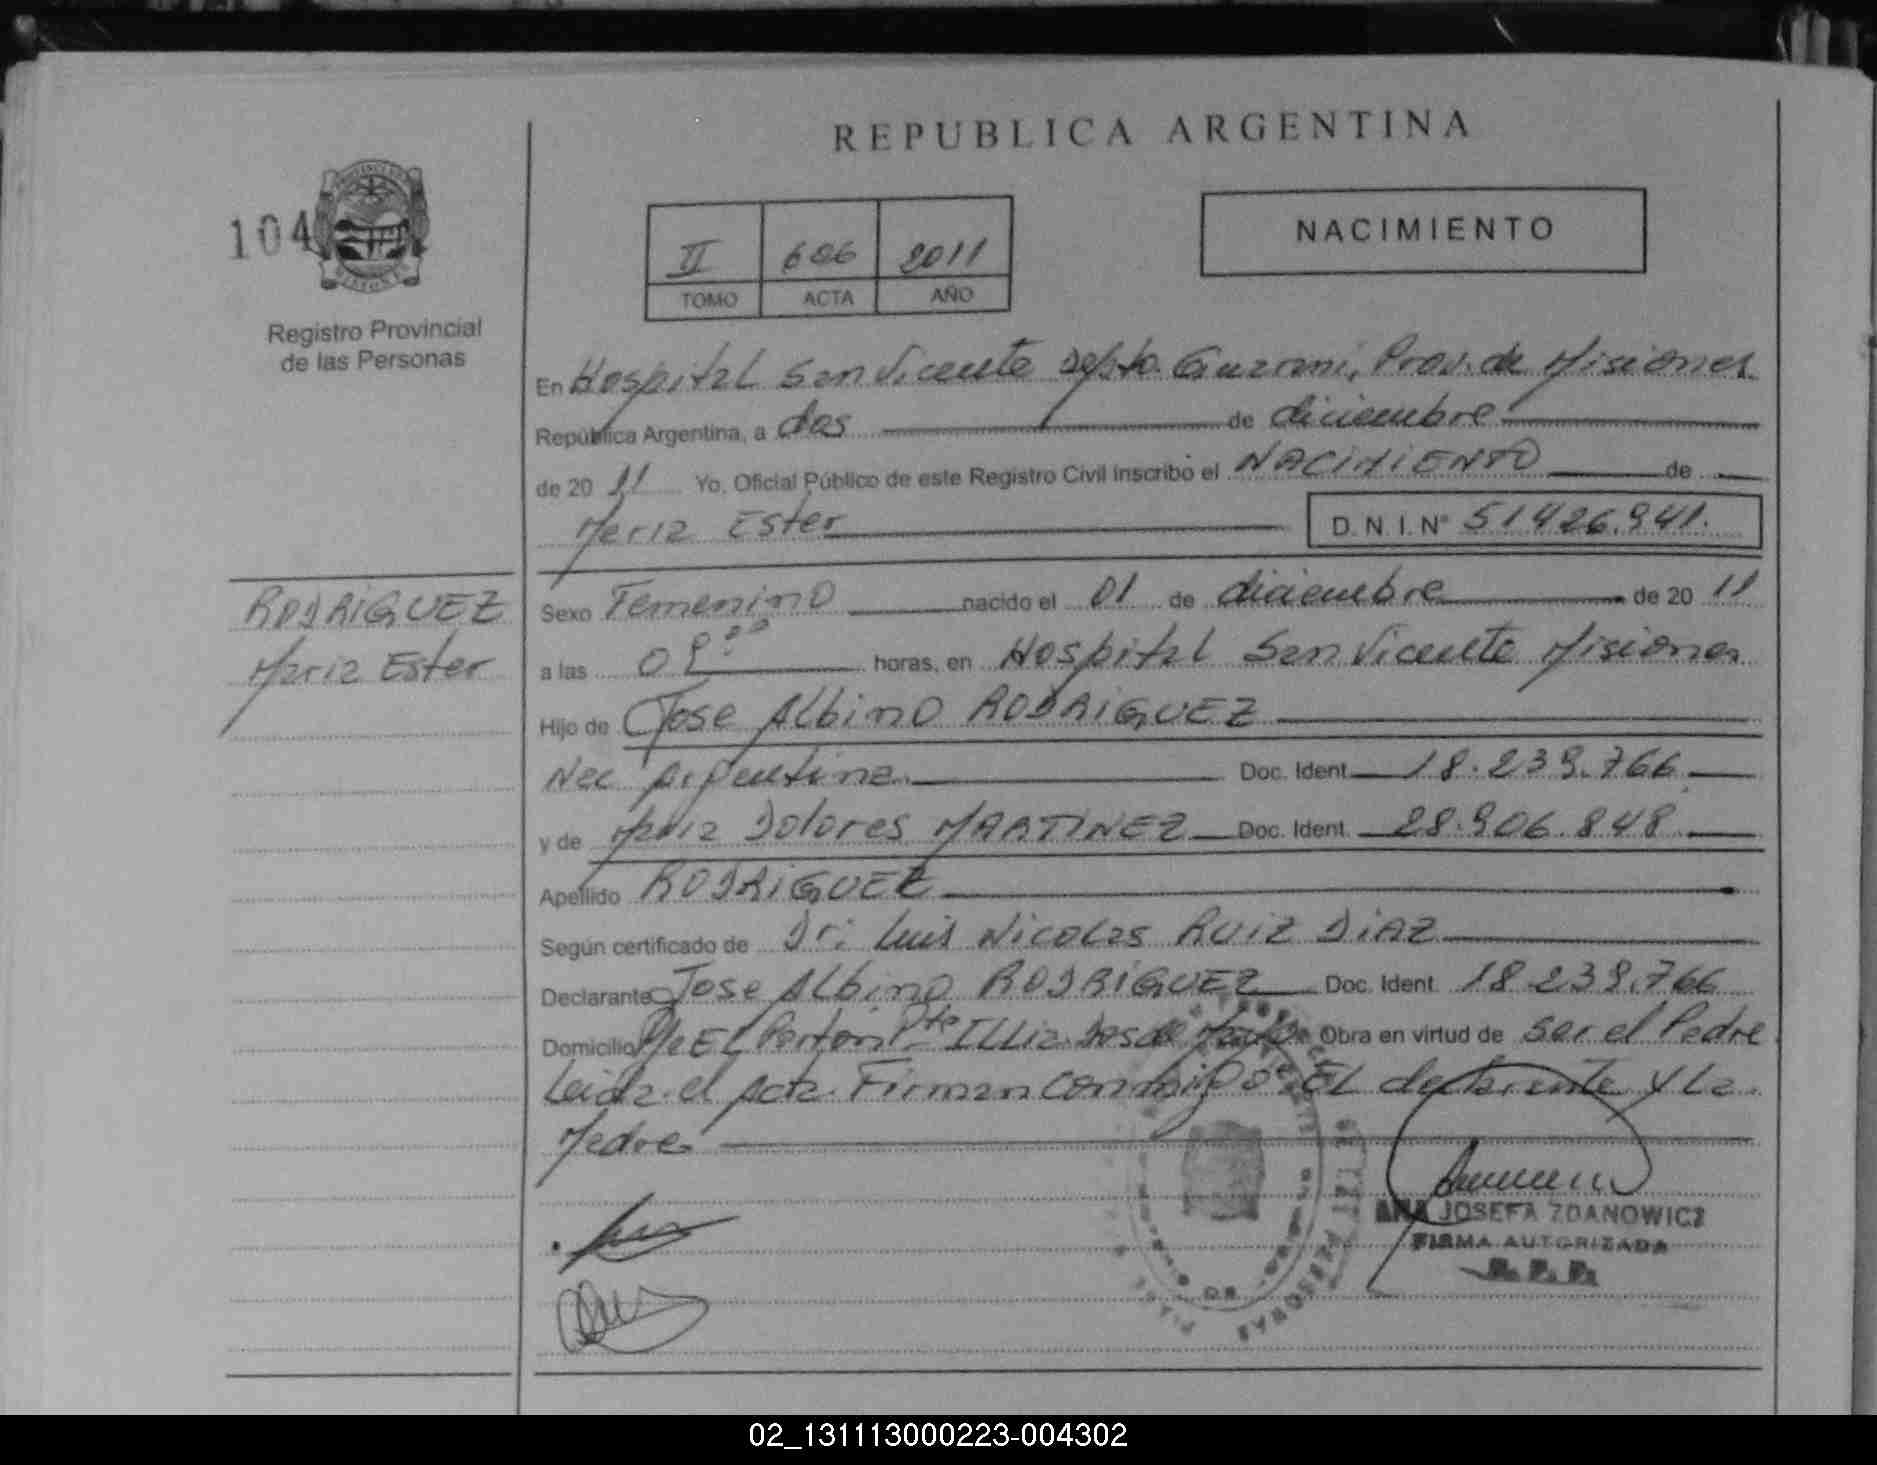 REPUBLICA ARGENTINA
104
Registro Provincial
de las Personas
II 606 2011
TOMO ACTA AÑO
NACIMIENTO
En Hospital San Vicente Depto. Guarani, Prov. de Misiones
República Argentina, a dos de diciembre
de 2011 Yo, Oficial Público de este Registro Civil inscribo el NACIMIENTO de
Maria Ester D.N.I. Nº 51426.941.
RODRIGUEZ
Maria Ester
Sexo Femenino nacido el 01 de diciembre de 2011
a las horas, en Hospital San Vicente Misiones
Hijo de Jose Albino RODRIGUEZ
Nac Argentina. Doc. Ident. 18.239.766
y de Maria Dolores MARTINEZ Doc. Ident. 28.906.848
Apellido RODRIGUEZ
Según certificado de Dr. Luis Nicolas RUIZ DIAZ
Declarante Jose Albino RODRIGUEZ Doc. Ident. 18.239.766
Domicilio Obra en virtud de ser el Padre
Leida el acta Firman conmigo EL declarante y La
Madre
ANA JOSEFA ZDANOWICZ
FIRMA AUTORIZADA
R. P. P.
02_131113000223-004302